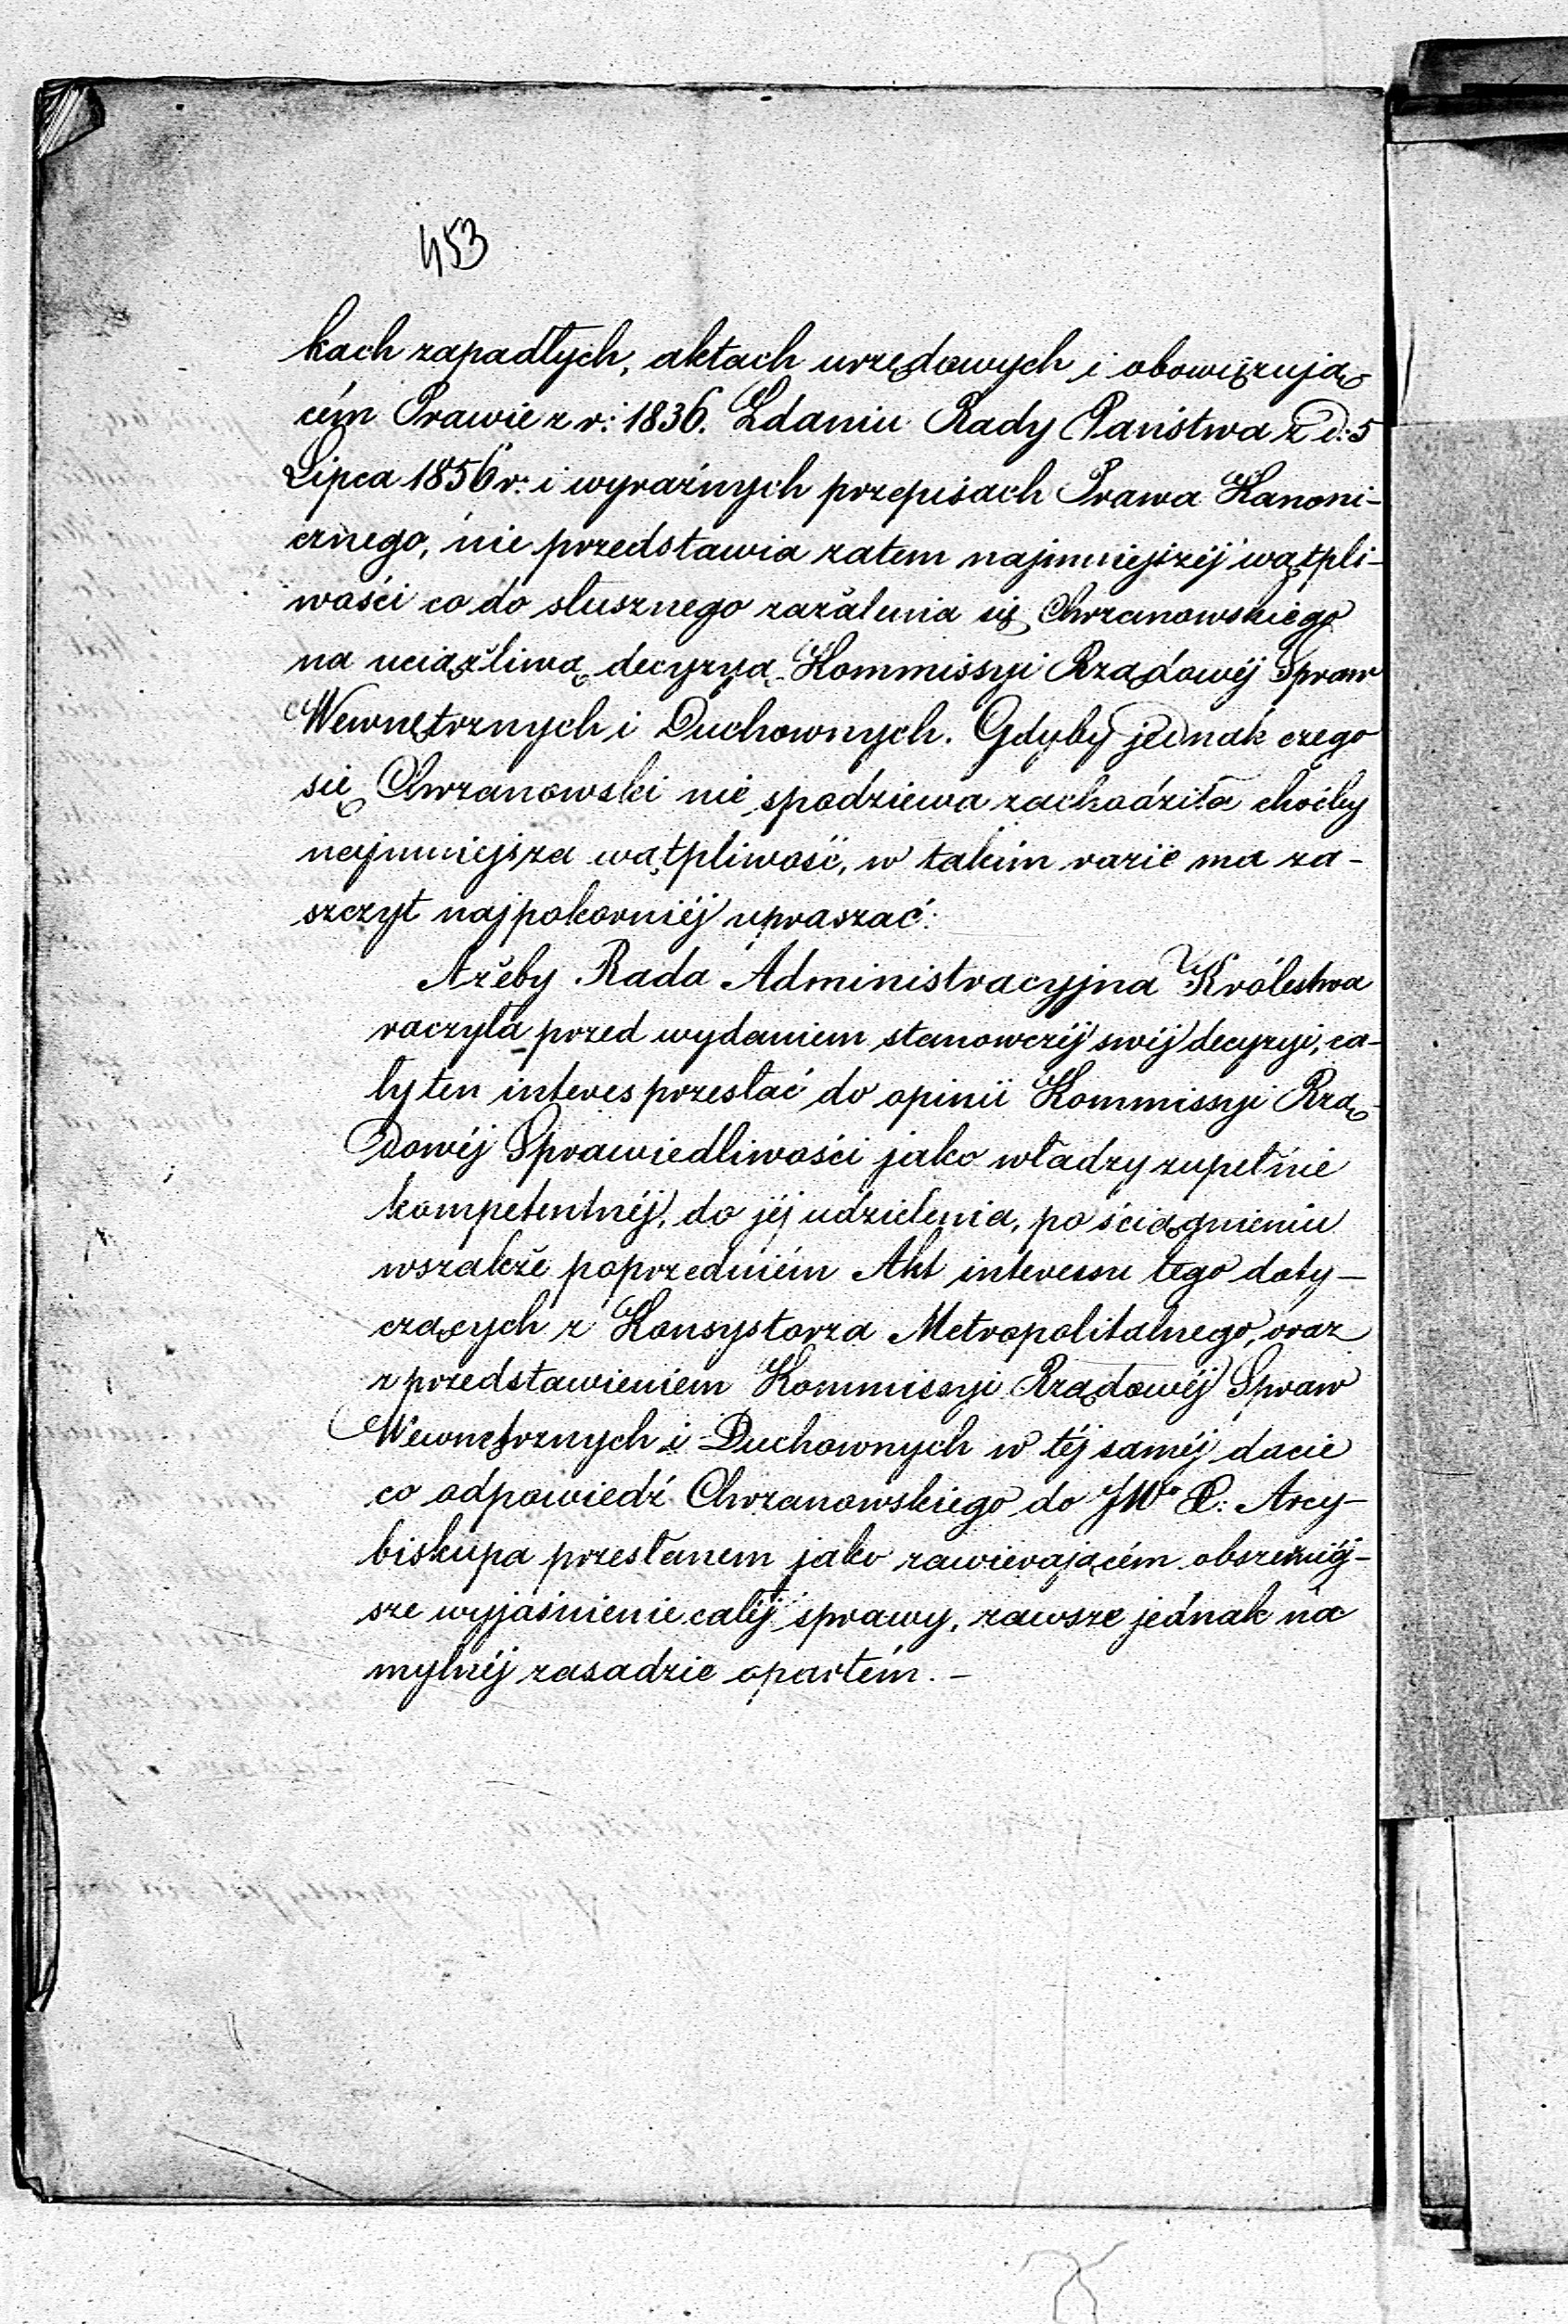 453
kach zapadłych, aktach urzędowych i obowięzują
cém Prawie z r: 1836. Zdaniu Rady Państwa z d: 5
Lipca 1856 r: i wyraźnych przepisach Prawa Kanoni-
cznego, nie przedstawia zatem najmniejszéj wątpli-
wości co do słusznego zażalenia się Chrzanowskiego
na uciążliwą decyzyą Kommissyi Rządowéj Spraw
Wewnętrznych i Duchownych. Gdyby jednak czego
się Chrzanowski nie spodziewa zachodziła choćby
najmniejsza wątpliwość, w takim razie ma za-
szczyt najpokorniéj upraszać:
Ażeby Rada Administracyjna Królestwa
raczyła przed wydaniem stanowczéj swéj decyzyi, ca-
ły ten interes przesłać do opinii Kommissyi Rzą-
dowéj Sprawiedliwości jako władzy zupełnie
kompetentnéj, do jéj udzielenia, po ściągnieniu
wszakże poprzedniém Akt interessu tego doty-
czących z Konsystorza Metropolitalnego, oraz
z przedstawieniem Kommissyi Rządowéj Spraw
Wewnętrznych i Duchownych w téj saméj dacie
co odpowiedź Chrzanowskiego do JWo P: Arcy-
biskupa przesłanem jako zawierającém obszerniéj-
sze wyjaśnienie całéj sprawy, zawsze jednak na
mylnéj zasadzie opartém. -